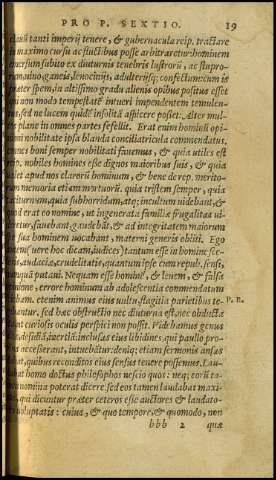 PRO P. SEXTIO. 19
tanti imperij tenere, & gubernacula reip. tractare
maximo cursu ac fluctibus posse arbitraretur: hominem
emersum subito ex diuturnis tenebris lustrorū, ac stupro-
ganeis, lenocinijs, adulterijsq; confectum: cum is
præter spem, in altissimo gradu alienis opibus positus esset
non modo tempestatē intueri impendentem temulen-
sed ne lucem quidē insolitā aspicere posset. Alter mul-
plane in omnes partes fefellit. Erat enim hominū opi-
nobilitate ipsa blanda conciliatricula commendatus,
boni semper nobilitati fauemus, & quia utile est
nobiles homines esse dignos maioribus suis, & quia
apud nos clarorū hominum, & bene de rep. merito-
memoria etiam mortuorū. quia tristem semper, quia
taciturnum, quia subhorridum, atq; incultum uidebant, &
erat eo nomine, ut ingenerata familiæ frugalitas ui-
fauebant, gaudebāt, & ad integritatem maiorum
sua hominem uocabant, materni generis obliti. Ego
uere hoc dicam, iudices) tantum esse in homine sce-
audaciæ, crudelitatis, quantum ipse cum repub. sensi,
putaui. Nequam esse hominē, & leuem, & falsa
errore hominum ab adolescentia commendatum
etenim animus eius uultu, flagitia parietibus te- P. R.
sed hæc obstructio nec diuturna est, nec obducta
curiosis oculis perspici non possit. Videbamus genus
desidiā, inertiā: inclusas eius libidines, qui paullo pro-
accesserant, intuebātur: deniq; etiam sermonis ansas
quibus reconditos eius sensus tenere possemus. Lau-
homo doctus philosophos nescio quos: neq; eorū ta-
nomina poterat dicere. sed eos tamen laudabat maxi-
qui dicuntur præter ceteros esse auctores & laudato-
uoluptatis: cuius, & quo tempore, & quomodo, non
bbb 2 quæ